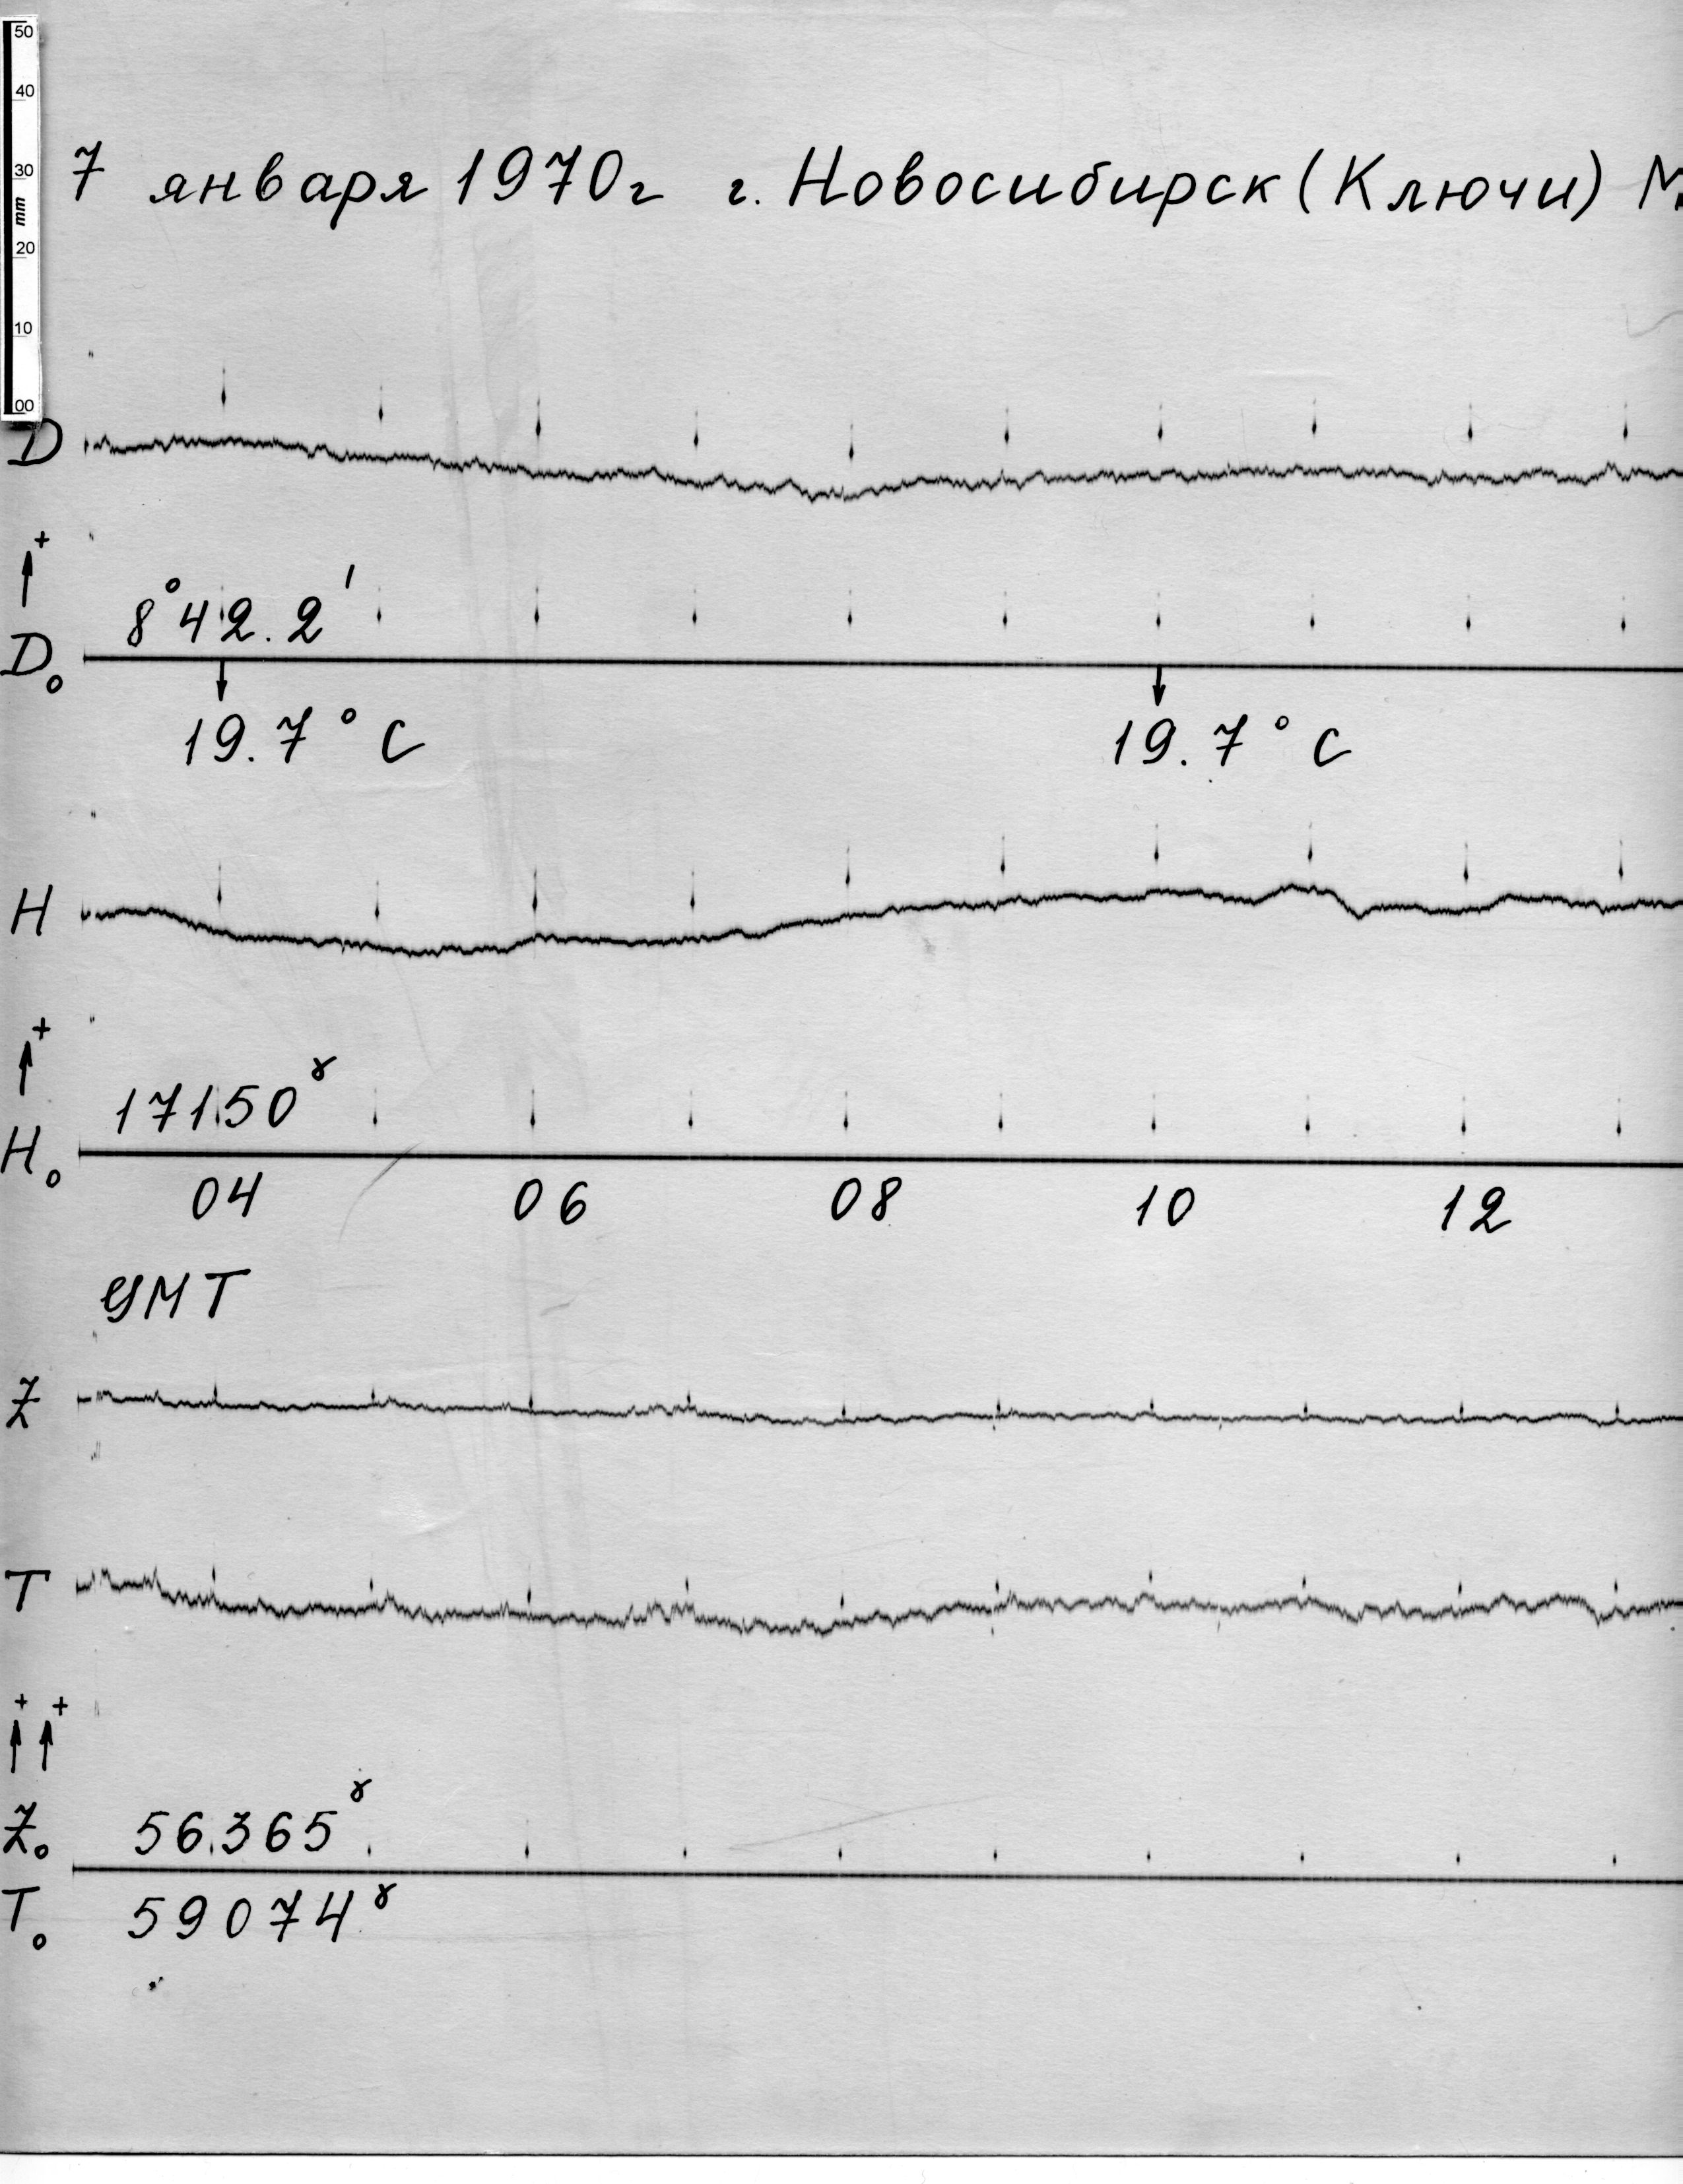 50
40
30
mm
20
10
00
7 января 1970г г. Новосибирск (Ключи)
D
+
8°42.2'
D₀
19.7°C 19.7°C
H
+
17150ᵞ
H₀
04 06 08 10 12
УМТ
Z
T
+ +
Z₀ 56365ᵞ
T₀ 59074ᵞ